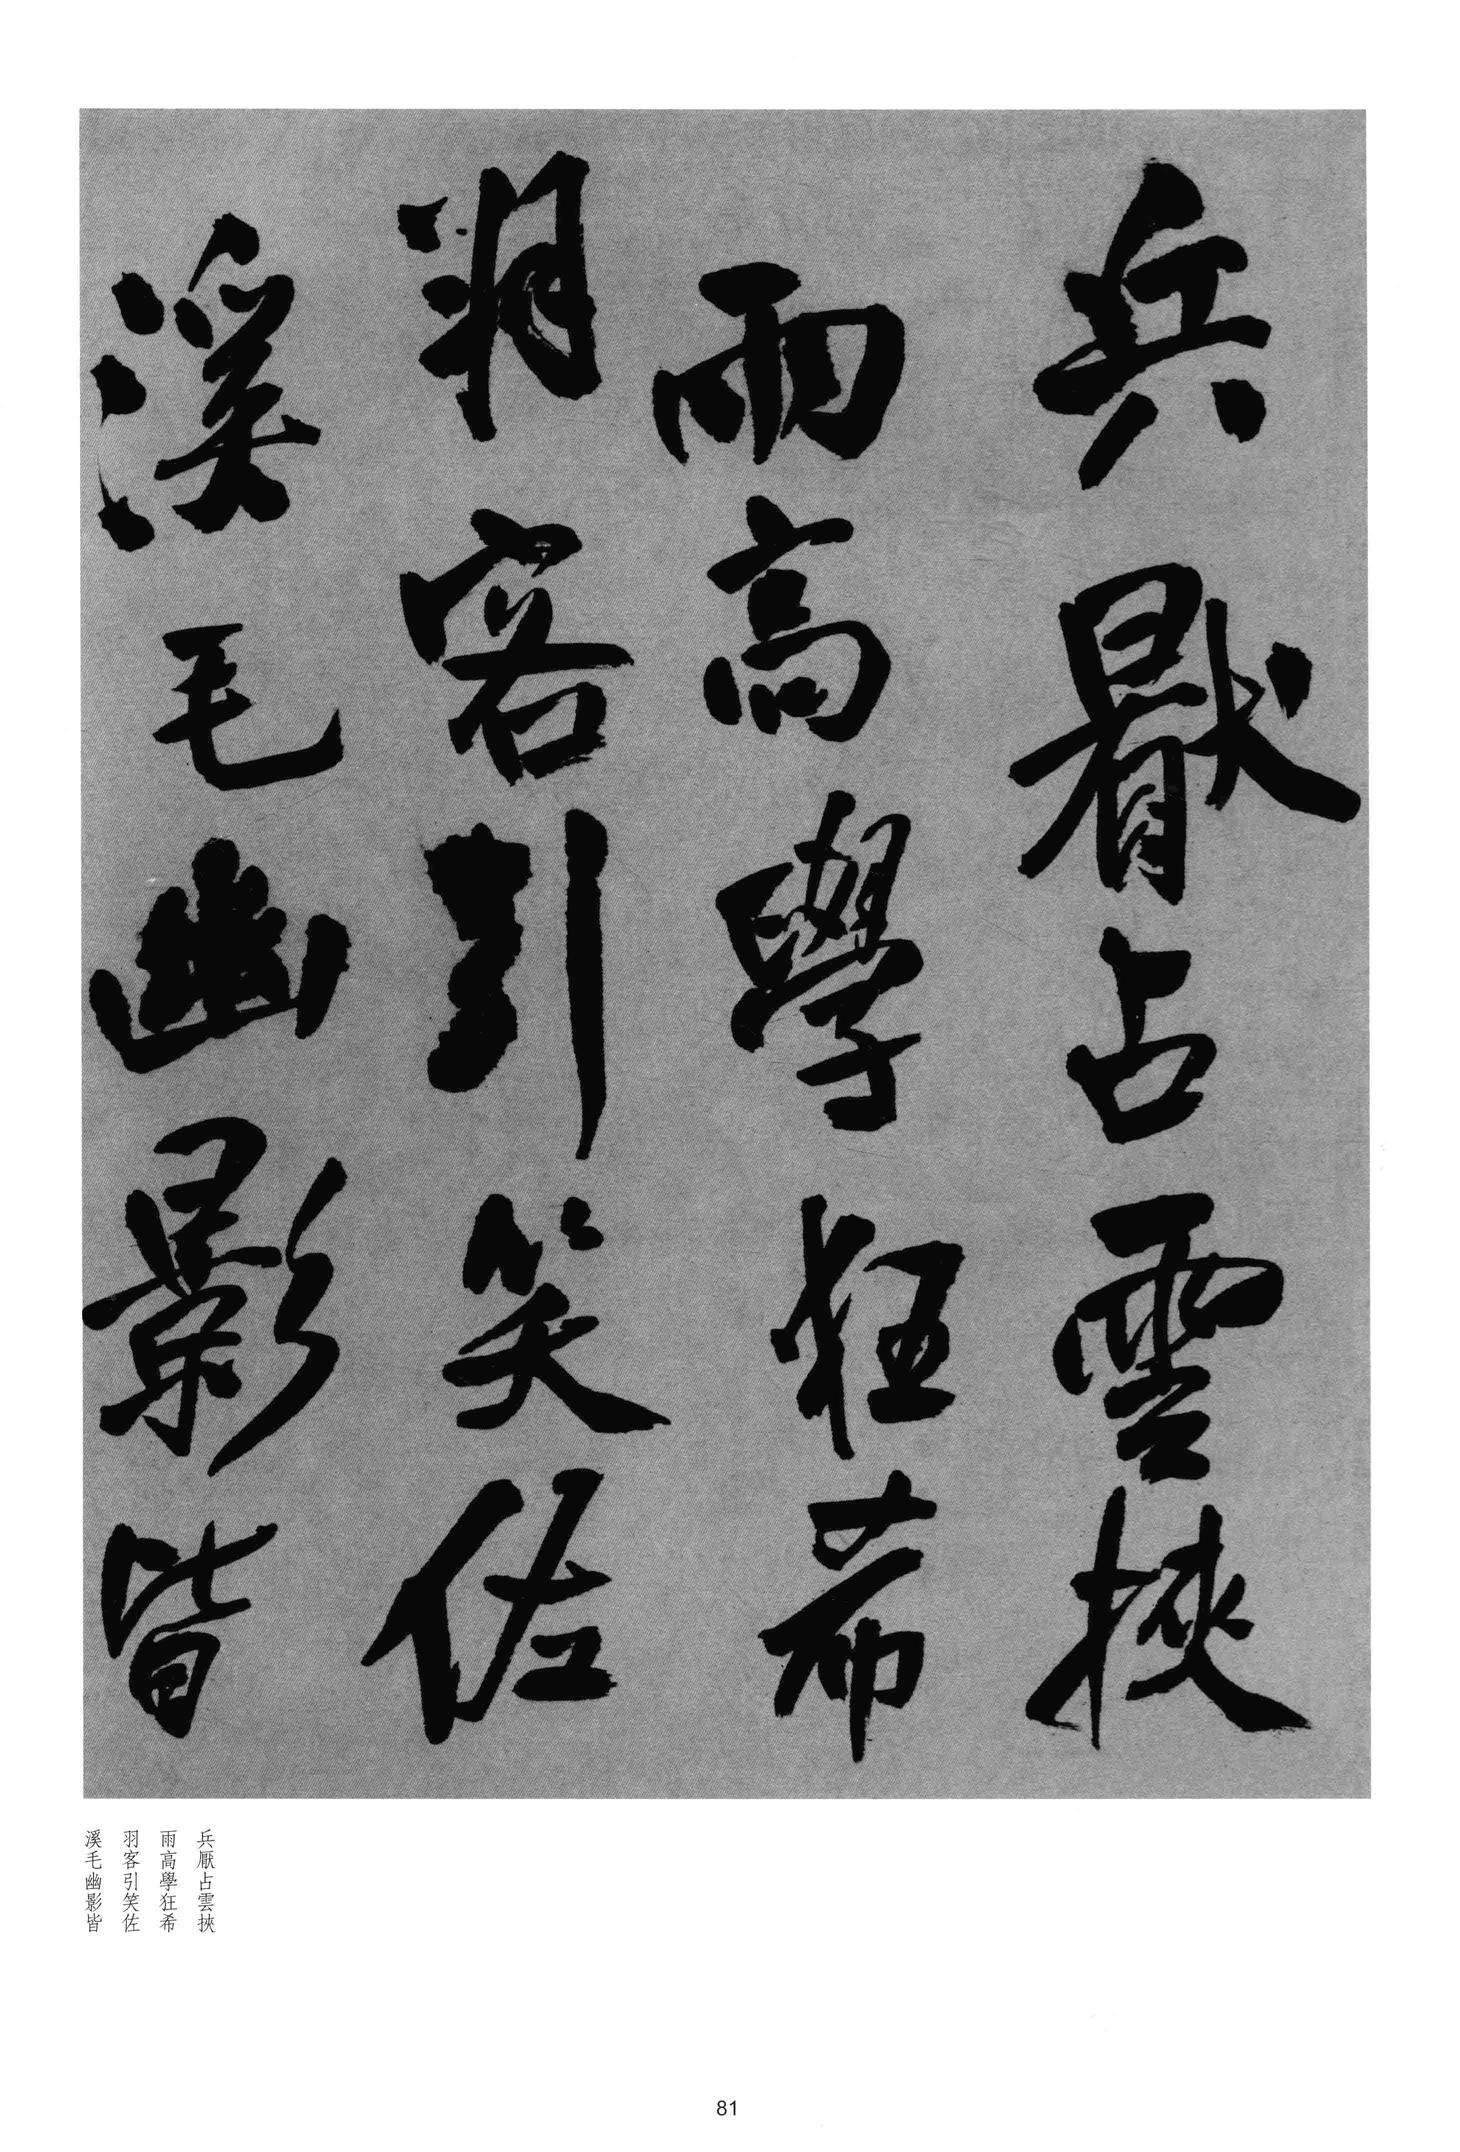 兵厭占雲挾
雨高學狂希
羽客引笑佐
溪毛幽影皆
兵厭占雲挾
雨高學狂希
羽客引笑佐
溪毛幽影皆
81